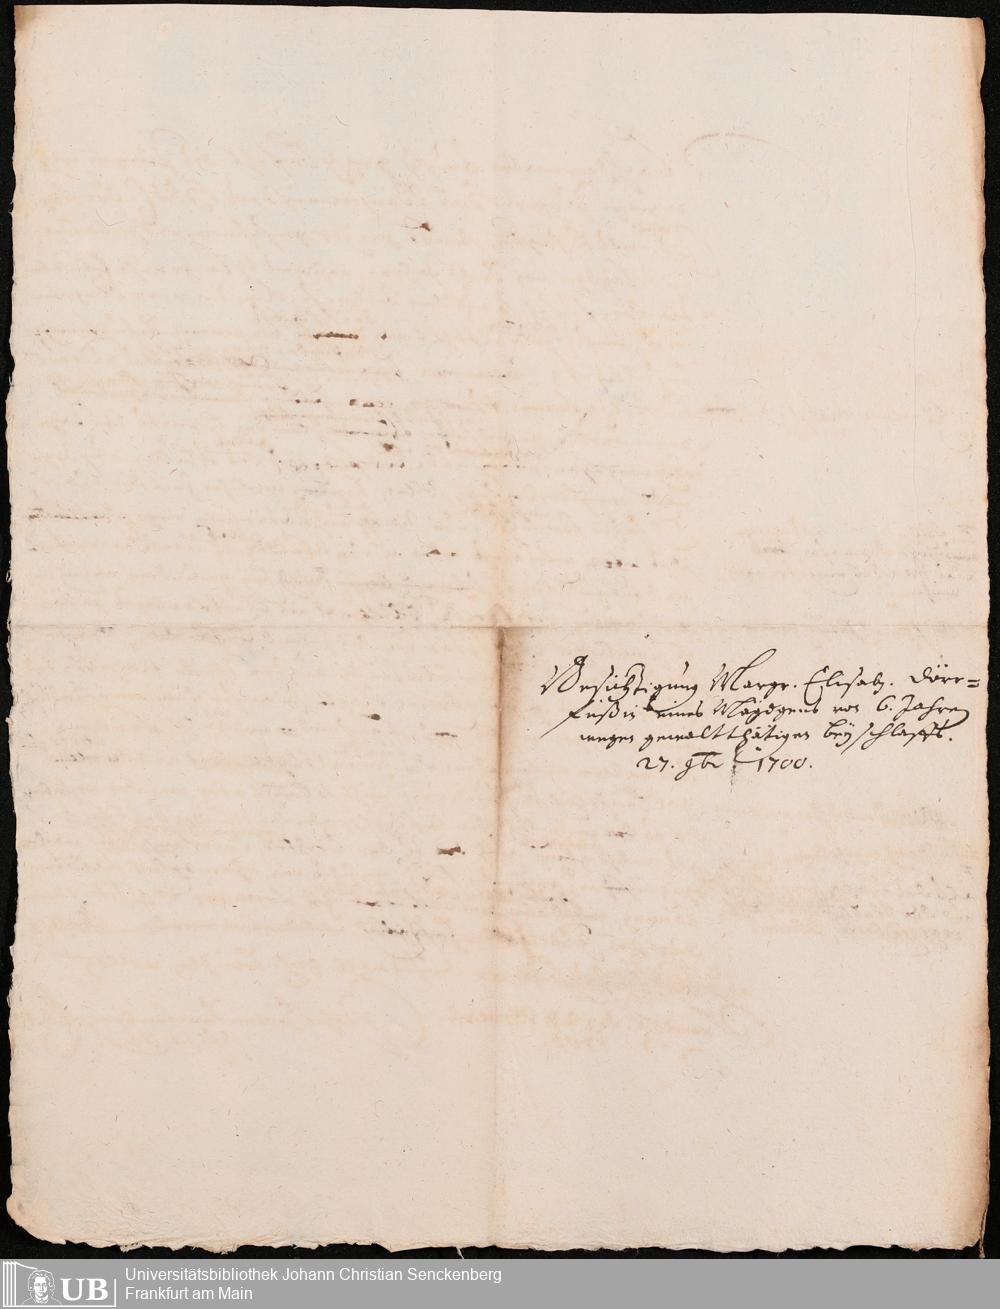 Besichtigung Margr. Elisab. Dörr=
füßin eines Mägdgens von 6. Jahren
wegen gewaltthätigen beyschlaffs.
27. 9br 1700.
UB
Universitätsbibliothek Johann Christian Senckenberg
Frankfurt am Main